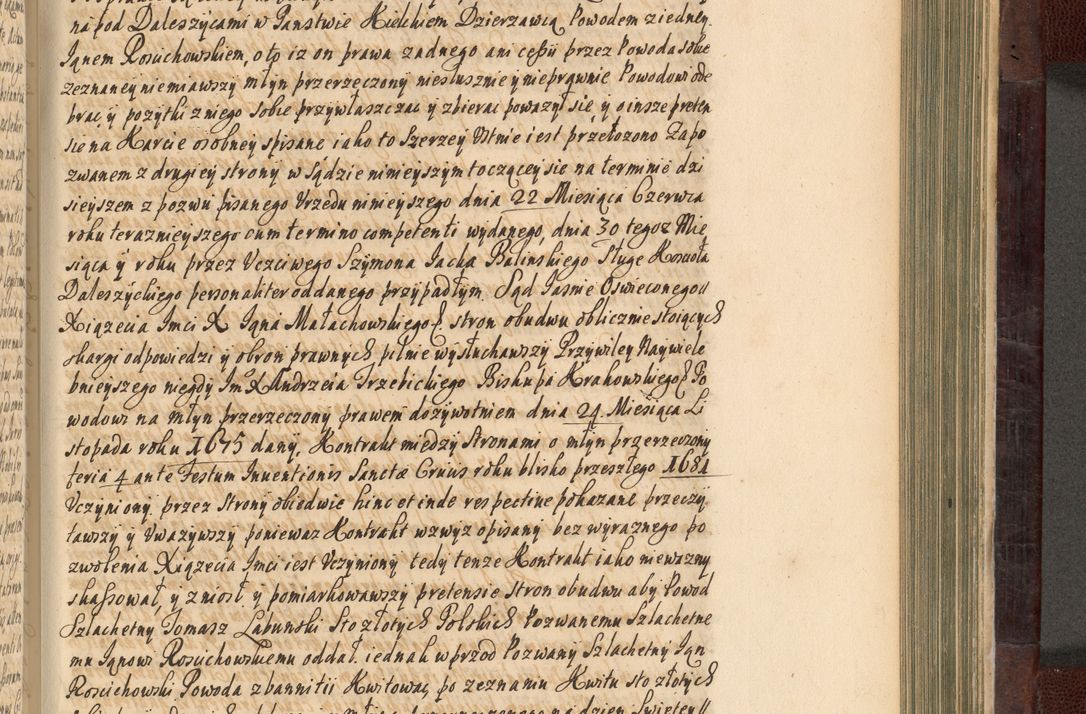 na pod Daleszycami w Panstwie Kielckiem Dzierzawcą Powodem z iedney
Janem Roscichowskiem, o to iz on prawa zadnego ani cessii przez Powoda sobie
zeznaney nie miawszy młyn przerzeczony niesłusznie y nieprawnie Powodowi ode
brac y pozytki z niego sobie przywłaszczac y zbierac powazył się, y o insze preten
sie na Karcie osobney spisane iako to szerzey Ustnie iest przełozono Zapo
zwanem z drugiey strony w Sądzie ninieyszym toczącey sie na terminie dzi
sieyszem z pozwu pisanego Urzedu ninieyszego dnia 22 Miesiąca Czerwca
roku terazneyszego cum termino competenti wydanego, dnia 30 tegoz Mie
siąca y roku przez Uczciwego Szymona Jacka Balinskiego Sługe Koscioła
Daleszyckiego personaliter oddanego przypadłym. Sąd Jasnie Oswieconego
Xiązecia Imci X Jana Małachowskiego &. stron obudwu oblicznie stoiących
skargi odpowiedzi y obron prawnych pilnie wysłuchawszy Przywiley Naywiele
bnieyszego niegdy Imo X Andrzeia Trzebickiego Biskupa Krakowskiego & Po
wodowi na młyn przerzeczony prawem dozywotniem dnia 24 Miesiąca Li
stopada roku 1675 dany, Kontrakt miedzy Stronami o młyn przerzeczony
feria 4 ante Festum Inventionis Sanctæ Crucis roku blisko przeszłego 1681
Uczyniony przez Strony obiedwie hinc et inde respective pokazane przeczy
tawszy y Uwazywszy poniewaz Kontrakt wzwyz opisany bez wyraznego po
zwolenia Xiązecia Imci iest Uczyniony tedy tenze Kontrakt iako niewazny
skassował, y zniosł y pomiarkowawszy pretensie Stron obudwu aby Powod
Szlachetny Tomasz Łabunski Sto złotych Polskich Pozwanemu Szlachetne
mu Janowi Roscichowskiemu oddał. iednak wprzod Pozwany Szlachetny Jan
Roscichowski Powoda z bannitii Kwitowac, po zeznaniu Kwitu sto złotych